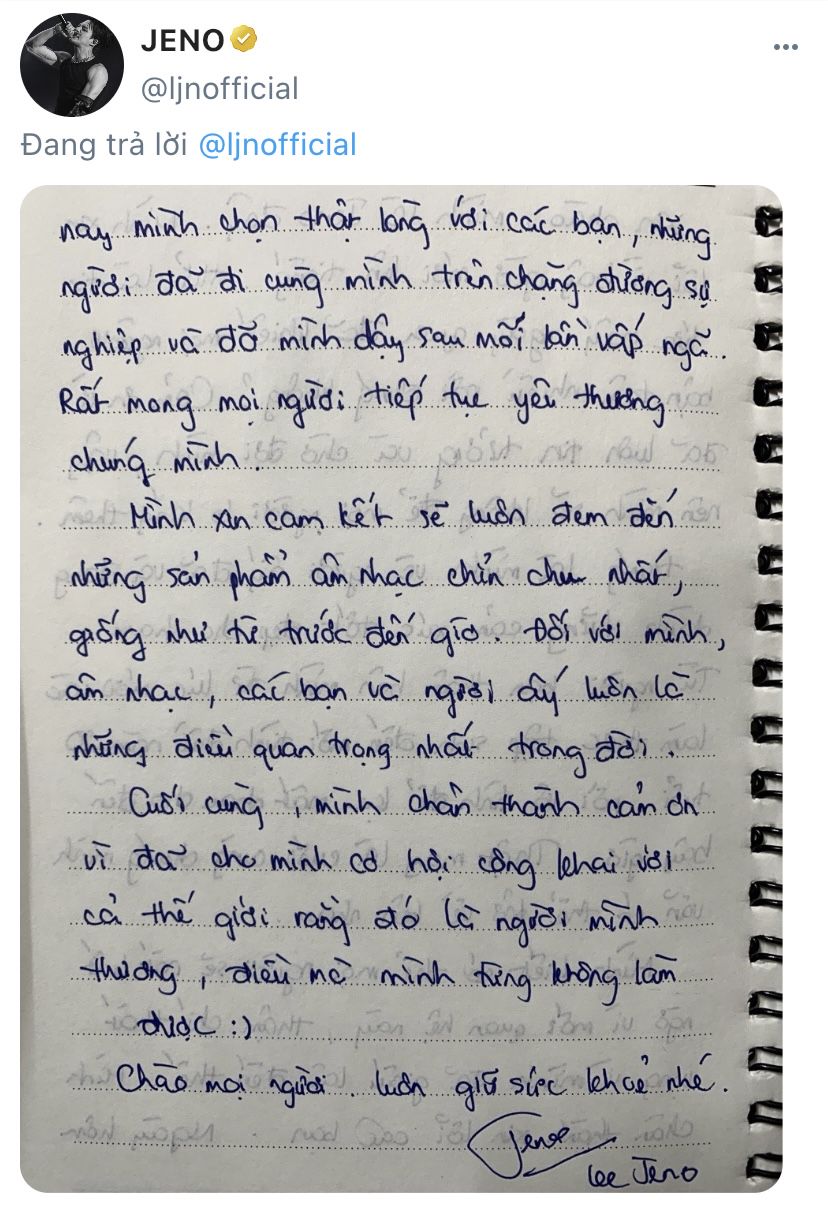 JENO
@ljnofficial
Đang trả lời @ljnofficial
nay mình chọn thật lòng với các bạn, những
người đã đi cùng mình trên chặng đường sự
nghiệp và đỡ mình dậy sau mỗi lần vấp ngã.
Rất mong mọi người tiếp tục yêu thương
chúng mình.
Mình xin cam kết sẽ luôn đem đến
những sản phẩm âm nhạc chỉn chu nhất,
giống như từ trước đến giờ. Đối với mình,
âm nhạc, các bạn và người ấy luôn là
những điều quan trọng nhất trong đời.
Cuối cùng, mình chân thành cảm ơn
vì đã cho mình cơ hội công khai với
cả thế giới rằng đó là người mình
thương, điều mà mình từng không làm
được :)
Chào mọi người. luôn giữ sức khoẻ nhé.
Jeno
Lee Jeno